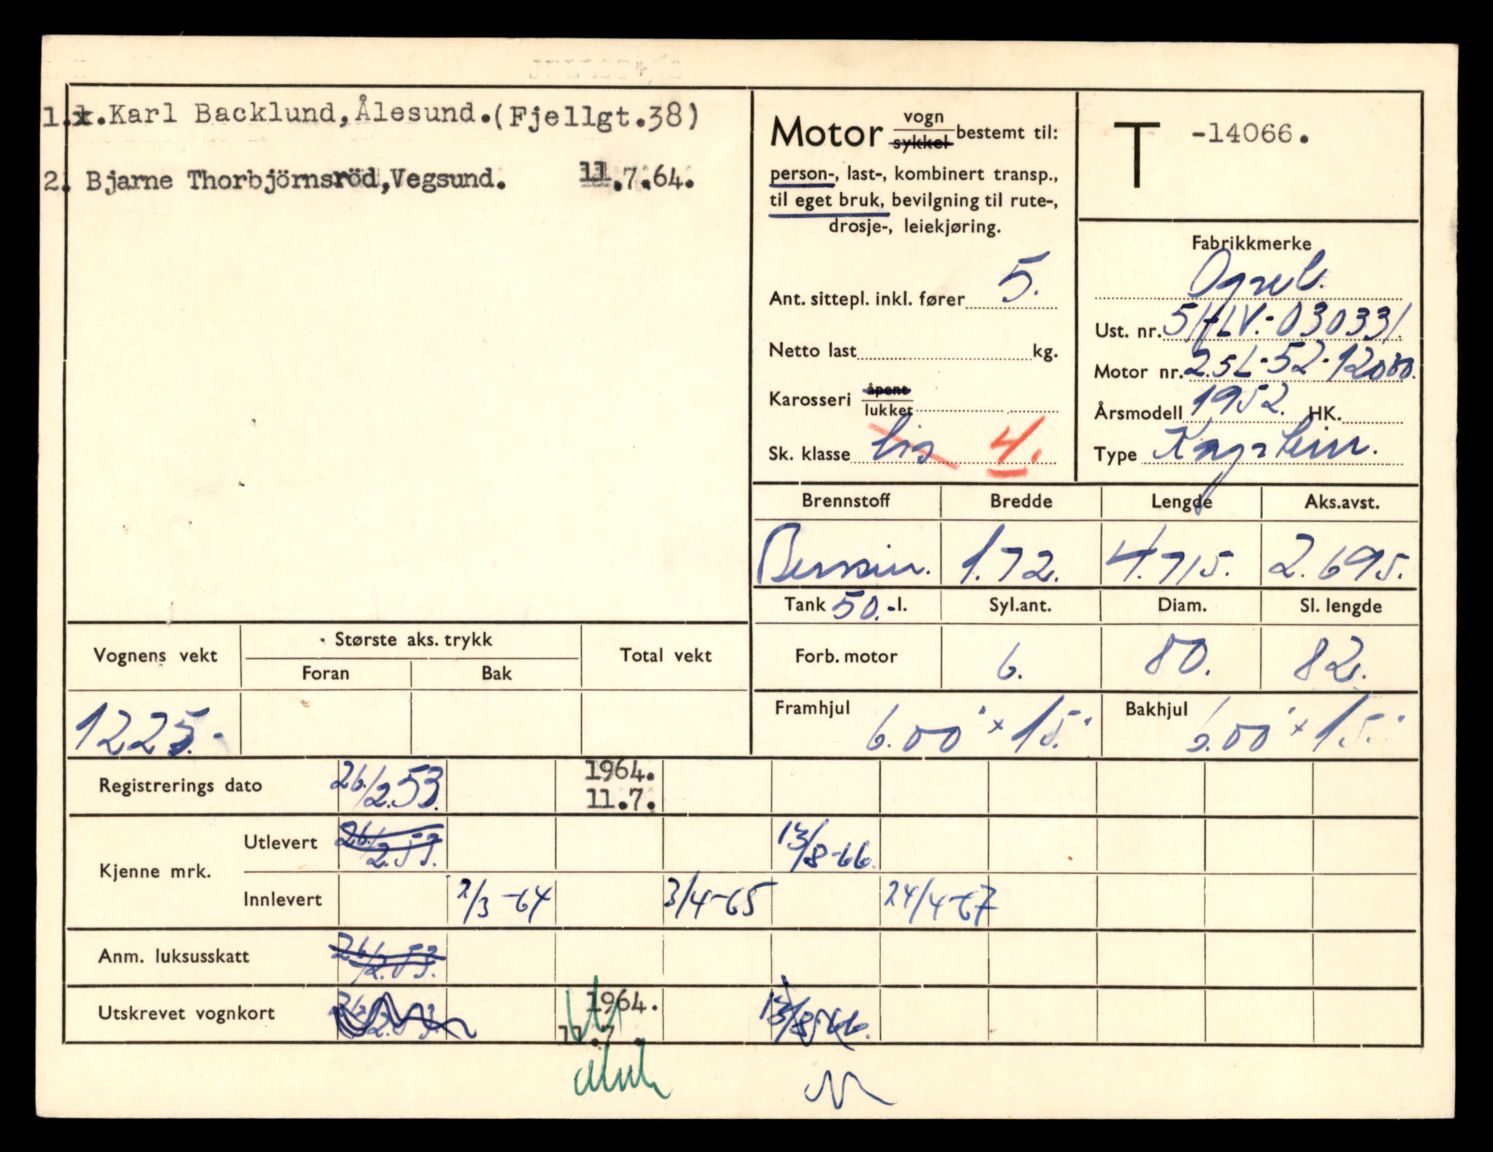 1.x.Karl Backlund,Ålesund.(Fjellgt.38)
2. Bjarne Thorbjörnsröd,Vegsund. 11.7.64.
Motor vogn sykkel bestemt til:
person-, last-, kombinert transp.,
til eget bruk, bevilgning til rute-,
drosje-, leiekjøring.
Ant. sittepl. inkl. fører 5.
Netto last kg.
Karosseri åpent lukket
Sk. klasse 4.
T -14066.
Fabrikkmerke
Opel.
Ust. nr. 51-LV.-030331.
Motor nr. 2.5L-52-12080.
Årsmodell 1952. HK.
Type Kapitein.
Brennstoff Bredde Lengde Aks.avst.
Bensin. 1.72. 4.715. 2.695.
Tank 50.-l. Syl.ant. Diam. Sl. lengde
Forb. motor 6. 80. 82.
Framhjul 6.00" x 15." Bakhjul 6.00" x 15."
Vognens vekt Største aks. trykk Total vekt
Foran Bak
1225.-
Registrerings dato 26/2.53. 1964. 11.7.
Kjenne mrk.
Utlevert 26/2.53. 13/8-66.
Innlevert 2/3-64 3/4-65 24/4-67
Anm. luksusskatt 26/2.53.
Utskrevet vognkort 26/2.53. 1964. 11.7. 13/8-66.